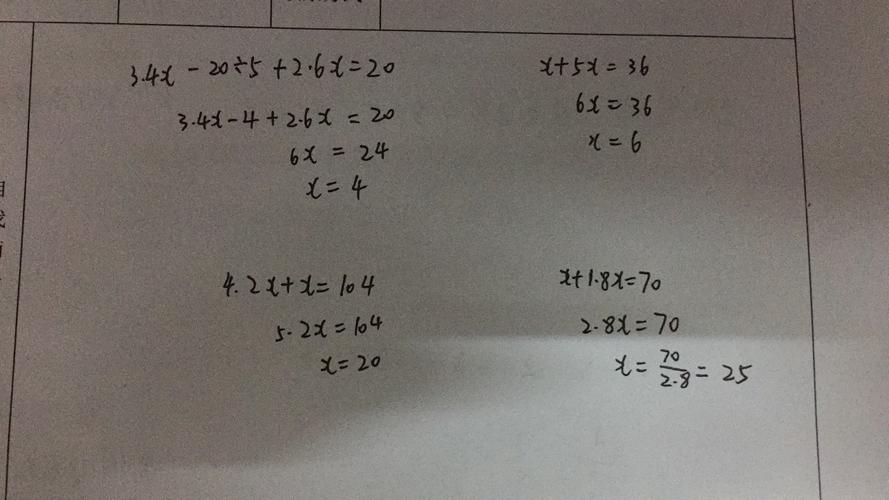 3.4x - 20÷5 + 2.6x = 20
3.4x - 4 + 2.6x = 20
6x = 24
x = 4
x + 5x = 36
6x = 36
x = 6
4.2x + x = 104
5.2x = 104
x = 20
x + 1.8x = 70
2.8x = 70
x = 70/2.8 = 25